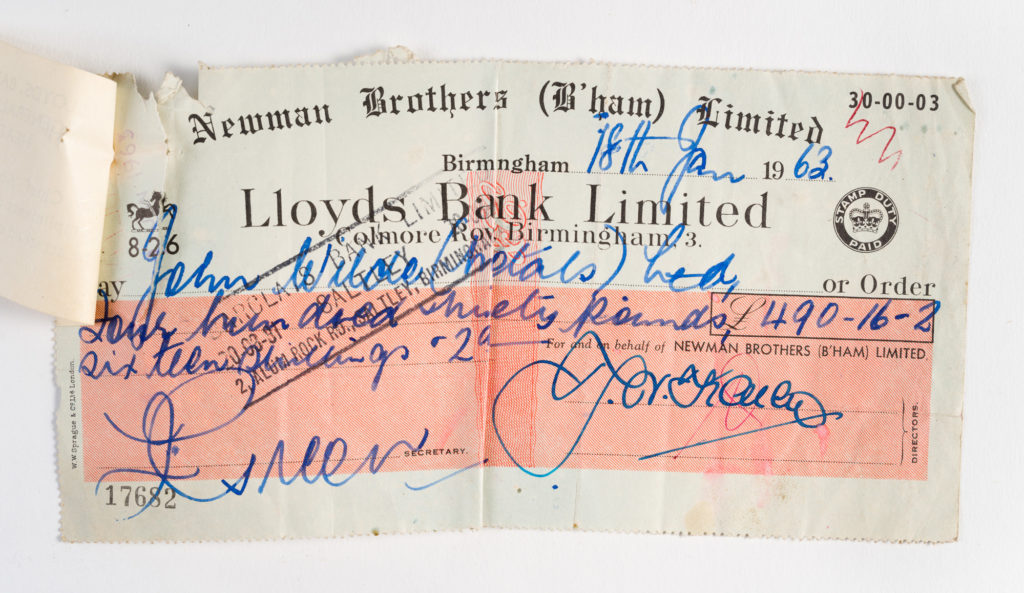 Newman Brothers (B'ham) Limited
30-00-03
Birmngham 18th Jan 1963.
Lloyds Bank Limited
Colmore Row, Birmingham, 3.
8-26
STAMP DUTY PAID
ay John Wilde (Metals) Led, or Order
Four hundred & ninety pounds, £490-16-2
Sixteen shillings - 2d
For and on behalf of NEWMAN BROTHERS (B'HAM) LIMITED.
BARCLAYS BANK LIMITED
SALTLEY
20-68-
2, ALUM ROCK RD, SALTLEY, BIRMINGHAM
W.W. Sprague & Co. Ltd London.
SECRETARY.
DIRECTORS.
17682